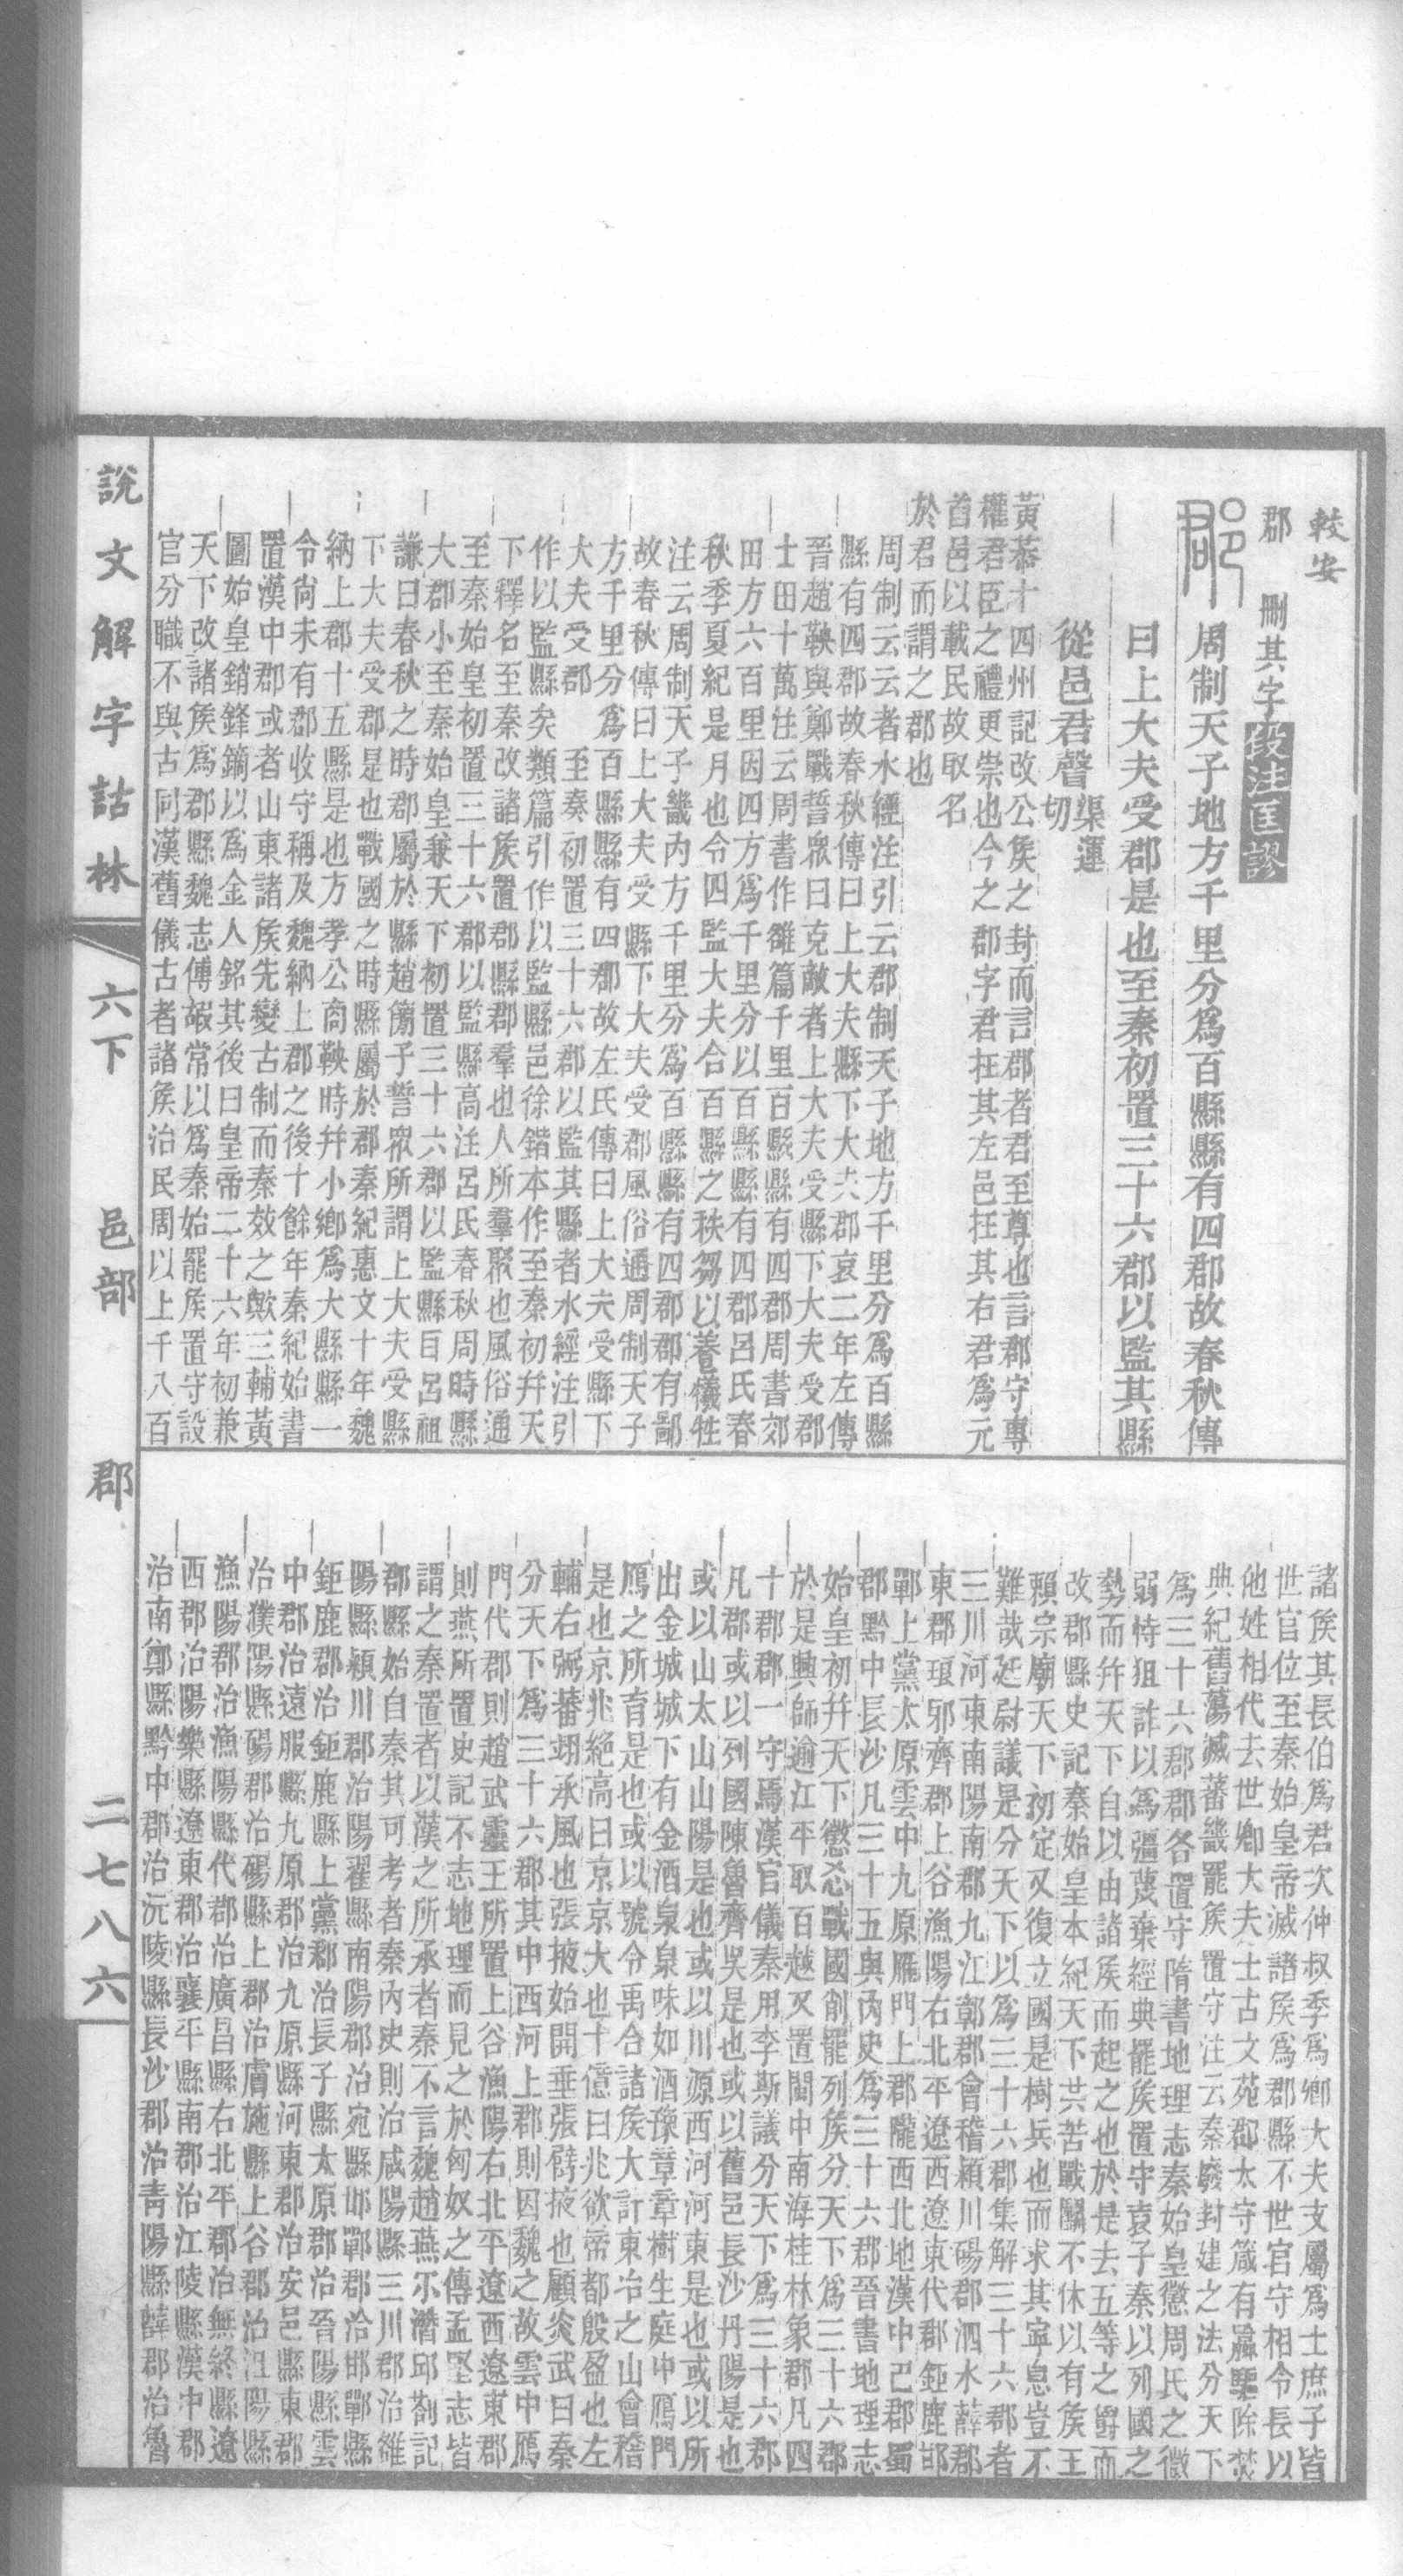 較妄
郡 刪其字段注匡謬
周制天子地方千里分爲百縣縣有四郡故春秋傳
曰上大夫受郡是也至秦初置三十六郡以監其縣
從邑君聲渠運切
黃恭十四州記改公矦之封而言郡者君至尊也言郡守專
權君臣之禮更崇也今之郡字君在其左邑在其右君爲元
首邑以載民故取名
於君而謂之郡也
周制云云者水經注引云郡制天子地方千里分爲百縣
縣有四郡故春秋傳曰上大夫縣下大夫郡哀二年左傳
晉趙鞅與鄭戰誓衆曰克敵者上大夫受縣下大夫受郡
士田十萬注云周書作雒篇千里百縣縣有四郡周書郊
田方六百里因四方爲千里分以百縣縣有四郡呂氏春
秋季夏紀是月也令四監大夫合百縣之秩芻以養犧牲
注云周制天子畿內方千里分爲百縣縣有四郡郡有鄙
故春秋傳曰上大夫受縣下大夫受郡風俗通周制天子
方千里分爲百縣縣有四郡故左氏傳曰上大夫受縣下
大夫受郡 至秦初置三十六郡以監其縣者水經注引
作以監縣矣類篇引作以監縣邑徐鍇本作至秦初幷天
下釋名至秦改諸矦置郡縣郡羣也人所羣聚也風俗通
至秦始皇初置三十六郡以監縣高注呂氏春秋周時縣
大郡小至秦始皇兼天下初置三十六郡以監縣
謙曰春秋之時郡屬於縣趙簡子誓衆所謂上大夫受縣
下大夫受郡是也戰國之時縣屬於郡秦紀惠文十年魏
納上郡十五縣是也方孝公商鞅時幷小鄉爲大縣縣一
令尚未有郡收守稱及魏納上郡之後十餘年秦紀始書
置漢中郡或者山東諸矦先變古制而秦效之歟三輔黃
圖始皇銷鋒鏑以爲金人銘其後曰皇帝二十六年初兼
天下改諸矦爲郡縣魏志傅嘏常以爲秦始罷矦置守設
官分職不與古同漢舊儀古者諸矦治民周以上千八百
諸矦其長伯爲君次仲叔季爲鄉大夫支屬爲士庶子皆
世官位至秦始皇帝滅諸矦爲郡縣不世官守相令長以
他姓相代去世卿大夫士古文苑郡太守箴有驅除焚
典紀舊蕩滅蕃畿罷矦置守注云秦廢封建之法分天下
爲三十六郡郡各置守隋書地理志秦始皇懲周氏之微
弱恃狙詐以爲彊蔑棄經典罷矦置守袁子秦以列國之
勢而幷天下自以由諸矦而起之也於是去五等之爵而
改郡縣史記秦始皇本紀天下共苦戰鬭不休以有矦王
賴宗廟天下初定又復立國是樹兵也而求其寧息豈不
難哉廷尉議是分天下以爲三十六郡集解三十六郡者
三川河東南陽南郡九江鄣郡會稽潁川碭郡泗水薛郡
東郡琅邪齊郡上谷漁陽右北平遼西遼東代郡鉅鹿邯
鄲上黨太原雲中九原鴈門上郡隴西北地漢中巴郡蜀
郡黔中長沙凡三十五與內史爲三十六郡晉書地理志
始皇初幷天下懲忿戰國削罷列矦分天下爲三十六郡
於是興師逾江平取百越又置閩中南海桂林象郡凡四
十郡郡一守焉漢官儀秦用李斯議分天下爲三十六郡
凡郡或以列國陳魯齊吳是也或以舊邑長沙丹陽是也
或以山太山山陽是也或以川源西河河東是也或以所
出金城城下有金酒泉泉味如酒豫章章樹生庭中鴈門
鴈之所育是也或以號令禹合諸矦大計東冶之山會稽
是也京兆絕高曰京京大也十億曰兆欲帝都殷盈也左
輔右弼蕃翊承風也張掖始開垂張臂掖也顧炎武曰秦
分天下爲三十六郡其中西河上郡則因魏之故雲中鴈
門代郡則趙武靈王所置上谷漁陽右北平遼西遼東郡
則燕所置史記不志地理而見之於匈奴之傳孟堅志皆
謂之秦置者以漢之所承者秦不言魏趙燕尒潛邱劄記
郡縣始自秦其可考者秦內史則治咸陽縣三川郡治雒
陽縣潁川郡治陽翟縣南陽郡治宛縣邯鄲郡治邯鄲縣
鉅鹿郡治鉅鹿縣上黨郡治長子縣太原郡治晉陽縣雲
中郡治遠服縣九原郡治九原縣河東郡治安邑縣東郡
治濮陽縣碭郡治碭縣上郡治膚施縣上谷郡治沮陽縣
漁陽郡治漁陽縣代郡治廣昌縣右北平郡治無終縣遼
西郡治陽樂縣遼東郡治襄平縣南郡治江陵縣漢中郡
治南鄭縣黔中郡治沅陵縣長沙郡治青陽縣薛郡治魯
說文解字詁林 六下 邑部 郡 二七八六